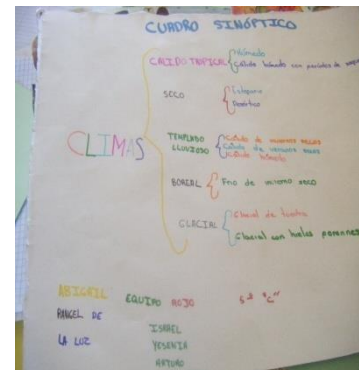 CUADRO SINÓPTICO
CALIDO TROPICAL
Húmedo
Cálido húmedo con periodos de
SECO
Estepario
Desértico
CLIMAS
TEMPLADO
LLUVIOSO
Cálido de inviernos secos
Cálido de veranos secos
Cálido húmedo
BOREAL
Frío de invierno seco
GLACIAL
Glacial de tundra
Glacial con hielos perennes
ABIGAIL
EQUIPO ROJO
5° "C"
RANGEL DE
LA LUZ
ISRAEL
YESENIA
ARTURO